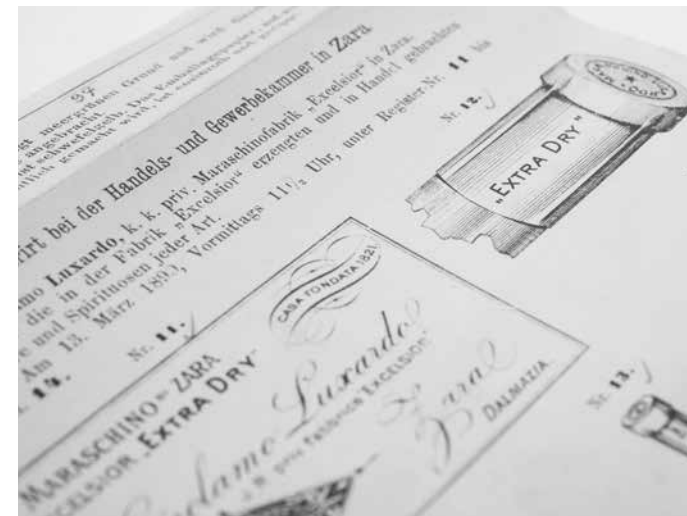 37
meergrünen Grund und wird
angebracht
Das Emballagepapier,
gemacht wird, ist
bei der Handels- und Gewerbekammer in Zara
Luxardo, k. k. priv. Maraschinofabrik „Excelsior“ in Zara.
die in der Fabrik „Excelsior“ erzeugten und in Handel gebrachten
und Spirituosen jeder Art.
Am 13. März 1893, Vormittags 11½ Uhr, unter Register-Nr. 11 bis
14.
Nr. 11.
Nr. 12.
„EXTRA DRY“
Nr. 13.
CASA FONDATA 1821
MARASCHINO DI ZARA
EXCELSIOR „EXTRA DRY“
Girolamo Luxardo
I. R. priv. fabbrica EXCELSIOR
Zara
DALMAZIA.